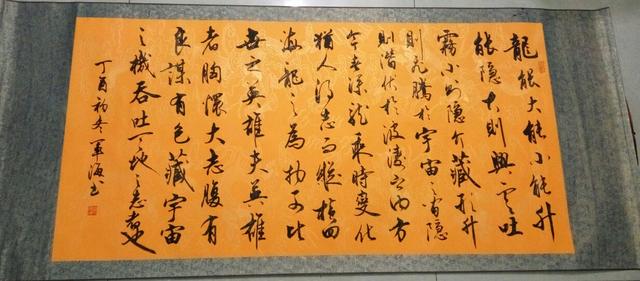 龍能大能小能升
能隐大則興雲吐
霧小則隐介藏形升
則飛騰於宇宙之间隐
則潛伏於波濤之内方
今春深龙乘時變化
猶人得志而縱横四
海龍之為物可比
世之英雄夫英雄
者胸懷大志腹有
良謀有包藏宇宙
之機吞吐天地之志者也
丁酉初冬軍海书